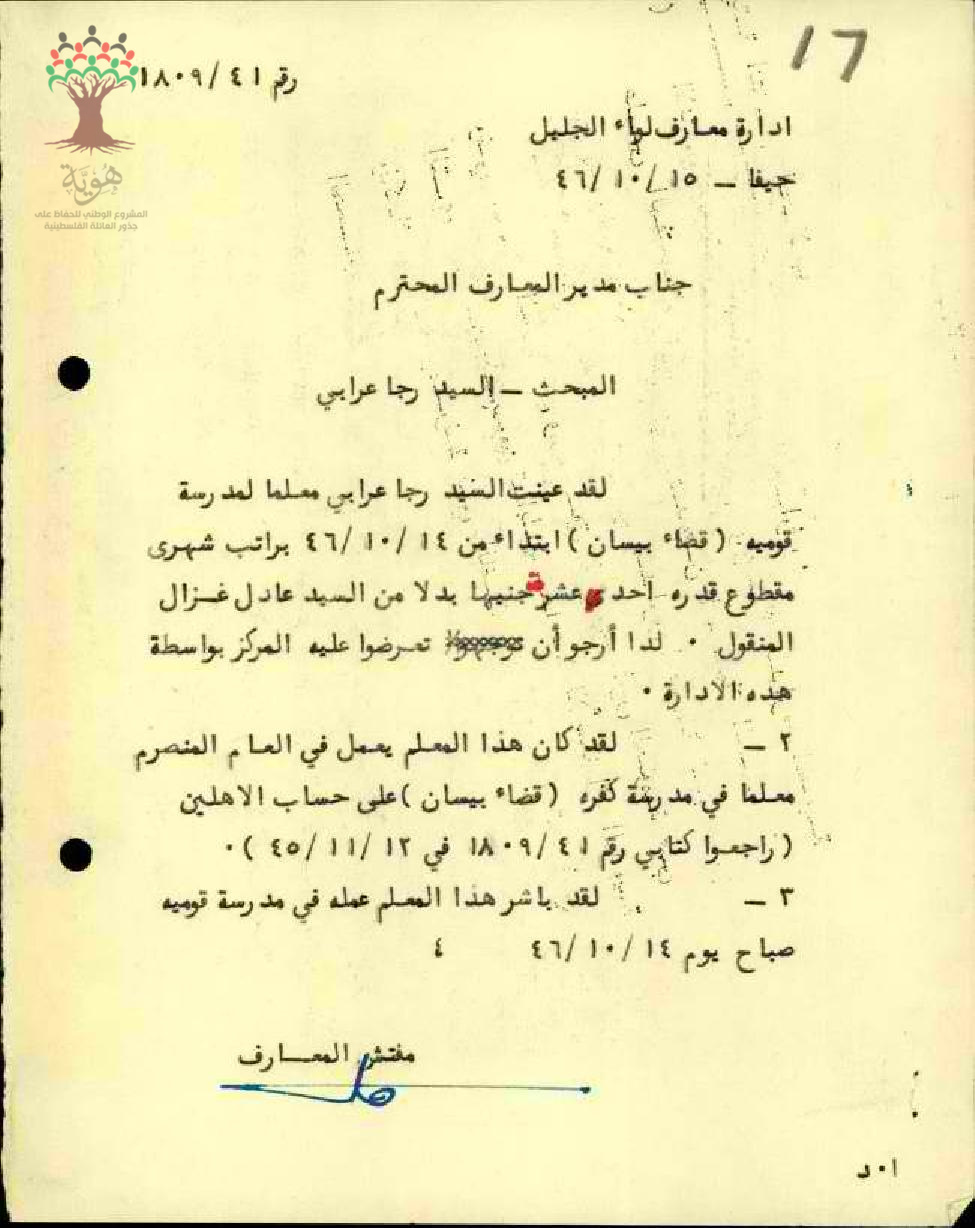 ١٦
هُويَّة
المشروع الوطني للحفاظ على
جذور العائلة الفلسطينية
رقم ١٨٠٩/٤١
ادارة معارف لواء الجليل
حيفا ــ ١٥ /١٠ /٤٦
جناب مدير المعارف المحترم
المبحث ــ السيد رجا عرابي
لقد عينت السيد رجا عرابي معلما لمدرسة
قوميه ( قضاء بيسان ) ابتداء من ١٤ /١٠ /٤٦ براتب شهرى
مقطوع قدره احد عشر جنيها بدلا من السيد عادل غزال
المنقول ٠ لدا أرجو أن تعرضوا عليه المركز بواسطة
هده الادارة ٠
٢ ــ لقد كان هذا المعلم يعمل في العام المنصرم
معلما في مدرسة كفره ( قضاء بيسان ) على حساب الاهلين
( راجعوا كتابي رقم ١٨٠٩/٤١ في ١٢ /١١ /٤٥ ) ٠
٣ ــ لقد باشر هذا المعلم عمله في مدرسة قوميه
صباح يوم ١٤ /١٠ /٤٦ ٤
مفتش المعــارف
ا٠د